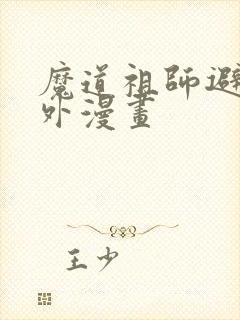 魔道祖師避
外漫畫
王少